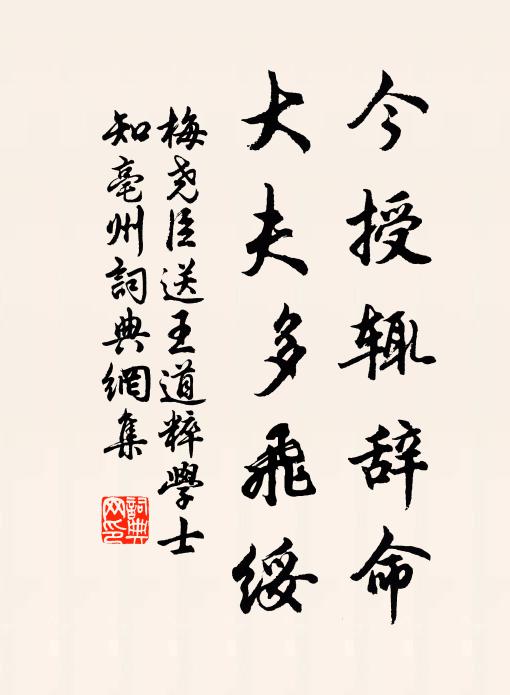 今授辄辞命
大夫多飛綏
梅尧臣送王道粹學士
知亳州詞典網集
詞典網印